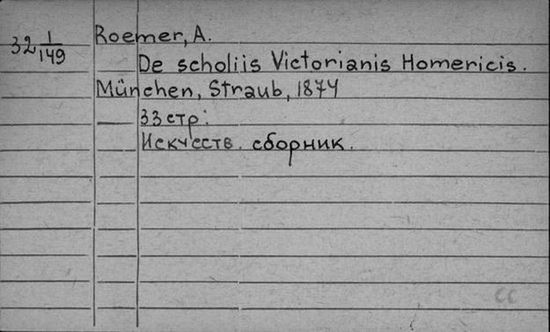 Roemer, A.
32 1/149
De scholiis Victorianis Homericis.
München, Straub, 1874
— 33 стр.
Искусств. сборник.
СС